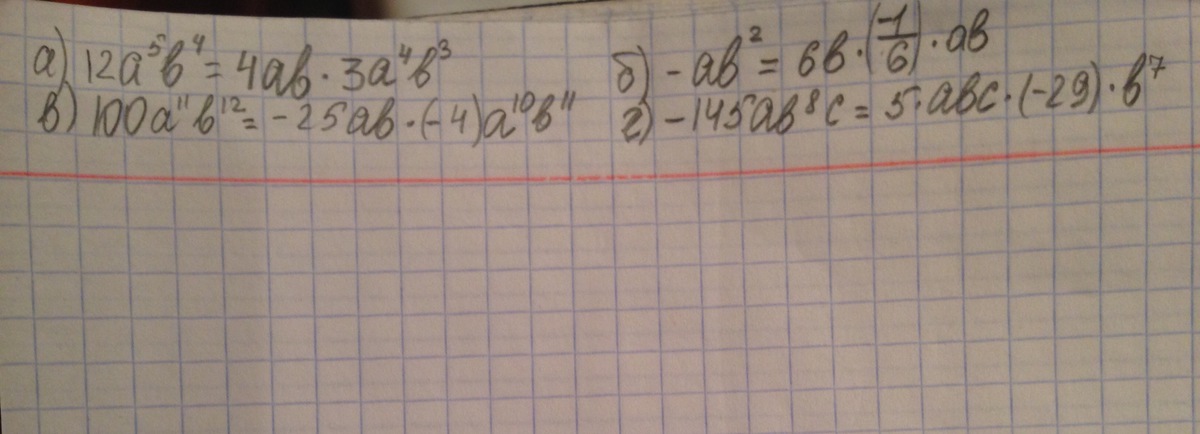 а) 12a⁵b⁴ = 4ab · 3a⁴b³ б) -ab² = 6b · (-1/6) · ab
в) 100a¹¹b¹² = -25ab · (-4)a¹⁰b¹¹ г) -145ab⁸c = 5 · abc · (-29) · b⁷